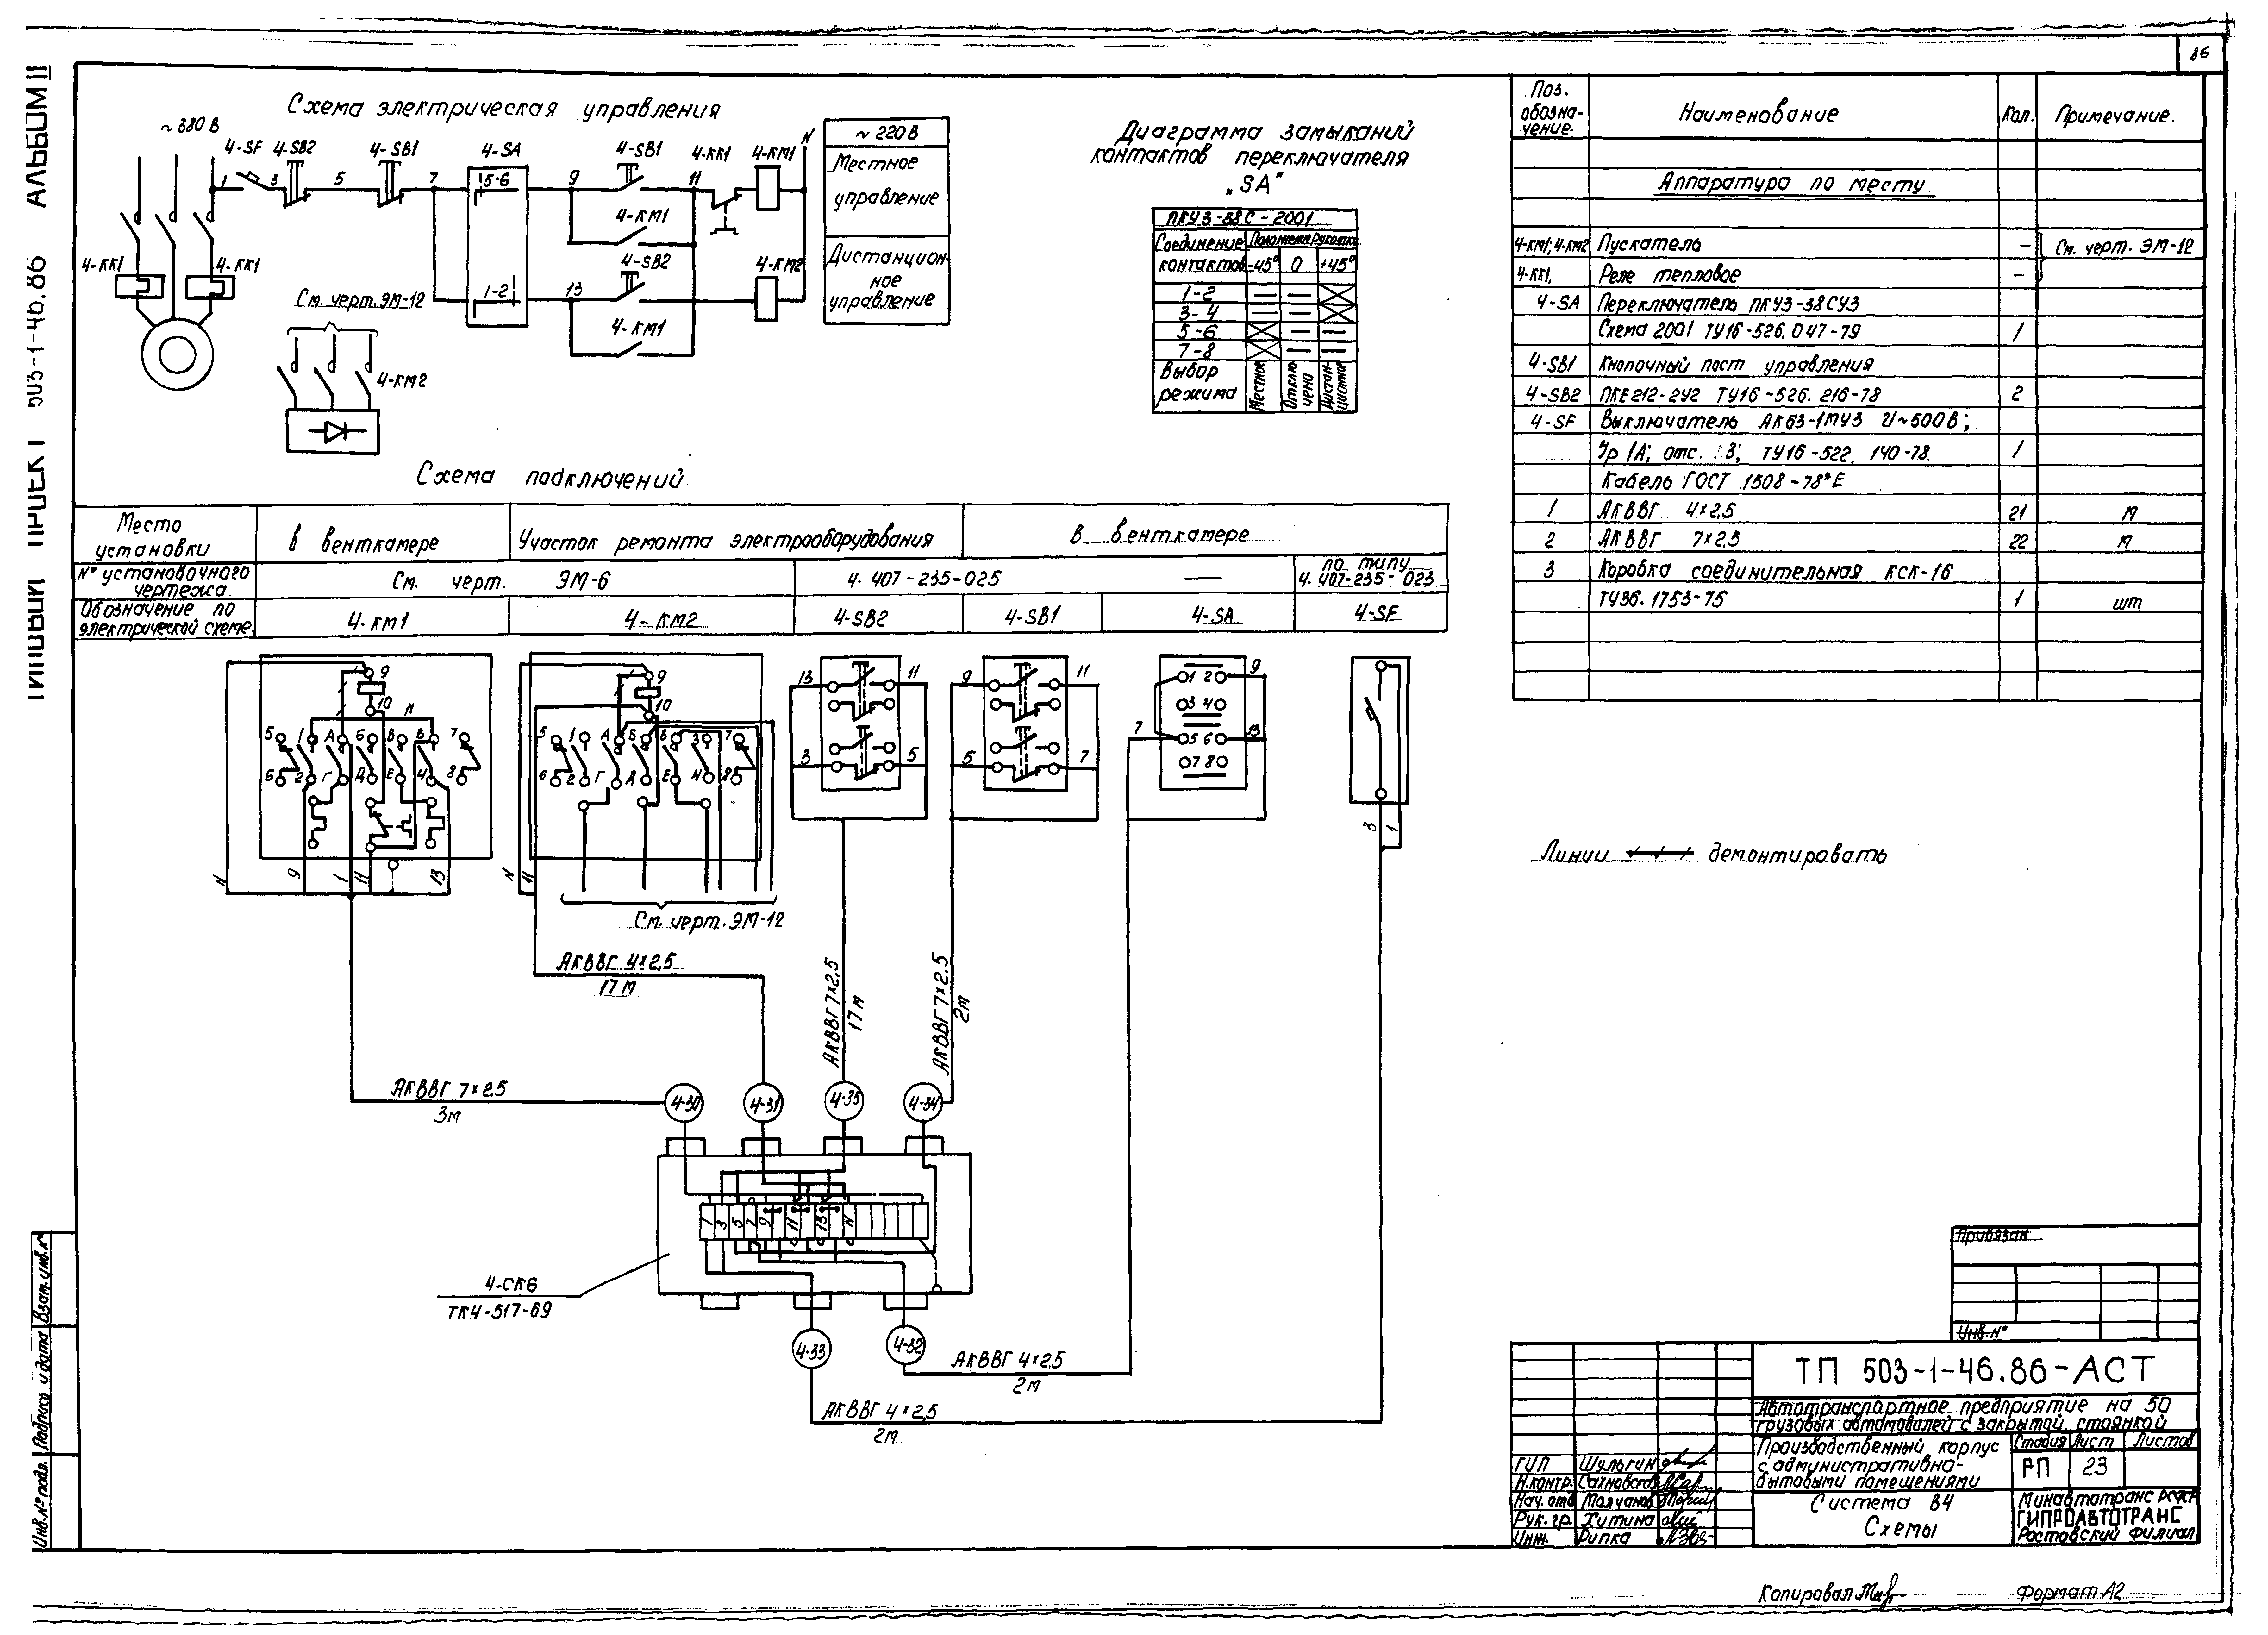 86
АЛЬБОМ II
503-1-46.86
ТИПОВЫЙ ПРОЕКТ
Схема электрическая управления
~ 380 В
4-SF
4-SB2
4-SB1
4-SA
4-SB1
4-КК1
4-КМ1
N
1
3
5
7
5-6
9
11
4-КМ1
4-SB2
4-КМ2
1-2
13
4-КМ1
4-КК1
4-КК1
См. черт. ЭМ-12
4-КМ2
~ 220 В
Местное
управление
Дистанцион-
ное
управление
Диаграмма замыканий
контактов переключателя
„SA"
ПКУ3-38С-2001
Соединение
контактов
Положение рукоятки
-45° 0 +45°
1-2
3-4
5-6
7-8
Выбор
режима
Местное
Отклю
чено
Дистан-
ционное
Поз.
обозна-
чение.
Наименование
Кол.
Примечание.
Аппаратура по месту
4-КМ1; 4-КМ2 Пускатель –
См. черт. ЭМ-12
4-КК1, Реле тепловое –
4-SA Переключатель ПКУ3-38СУ3
Схема 2001 ТУ16-526.047-79 1
4-SB1 Кнопочный пост управления
4-SB2 ПКЕ212-2У2 ТУ16-526.216-78 2
4-SF Выключатель АК63-1МУ3 U~500В;
Iр 1А; отс. 13; ТУ16-522. 140-78 1
Кабель ГОСТ 1508-78*Е
1 АКВВГ 4×2,5 21 м
2 АКВВГ 7×2,5 22 м
3 Коробка соединительная КСК-16
ТУ36.1753-75 1 шт
Схема подключений
Место
установки
В венткамере
Участок ремонта электрооборудования
В венткамере
N° установочного
чертежа
См. черт. ЭМ-6
4.407-235-025
—
по типу
4.407-235-023
Обозначение по
электрической схеме.
4-КМ1
4-КМ2
4-SB2
4-SB1
4-SA
4-SF
9
10
N
5 1 А Б В 3 7
6 2 Г Д Е 4 8
N 9 1 11 13
9
10
5 1 А Б В 3 7
6 2 Г Д Е 4 8
N 11
См. черт. ЭМ-12
13 11
3 5
9 11
5 7
1 2 9
3 4
7 5 6 13
7 8
3 1
Линии демонтировать
АКВВГ 4×2,5
17 м
АКВВГ 7×2,5
17 м
АКВВГ 7×2,5
2м
АКВВГ 7×2,5
3м
4-30
4-31
4-35
4-34
1 3 5 7 9 11 13 N
4-СК6
ТК4-517-69
4-33
4-32
АКВВГ 4×2,5
2м
АКВВГ 4×2,5
2м
Привязан
Инв.N°
ТП 503-1-46.86-АСТ
Автотранспортное предприятие на 50
грузовых автомобилей с закрытой стоянкой
Производственный корпус
с административно-
бытовыми помещениями
Стадия Лист Листов
РП 23
Система В4
Схемы
Минавтотранс РСФСР
ГИПРОАВТОТРАНС
Ростовский филиал
ГИП Шульгин
Н.контр. Сахновская
Нач. отд Молчанов
Рук. гр. Хитина
Инж. Рипка
Взам. инв. N°
Подпись и дата
Инв. N° подл.
Копировал
Формат А2